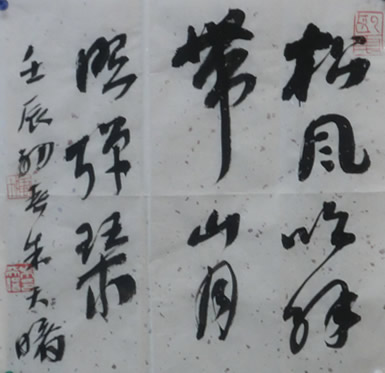 松风吹解
带山月
照弹琴
壬辰初春朱天曙